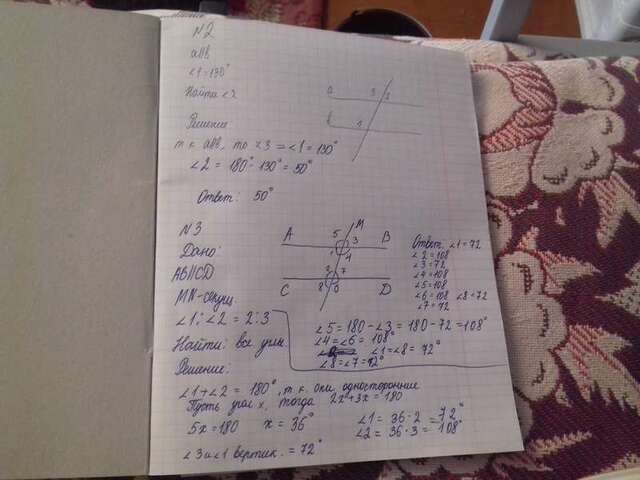 N2
a||b
<1=130°
Найти <2
Решение
т.к a||b, то <3 = <1 = 130°
<2 = 180°-130° = 50°
Ответ: 50°
N3
Дано:
AB||CD
MN-секущ
<1:<2 = 2:3
Найти: все углы
Решение:
<1+<2 = 180°, т.к они односторонние
Пусть угол x, тогда 2x+3x=180
5x=180 x=36°
<1=36·2=72°
<2=36·3=108°
<3 и <1 вертик. = 72°
<5=180-<3=180-72=108°
<4=<6=108°
<8=<7=72°
A
B
C
D
M
5
3
1
4
2
7
8
6
Ответ: <1=72
<2=108
<3=72
<4=108
<5=108
<6=108
<7=72
<8=72